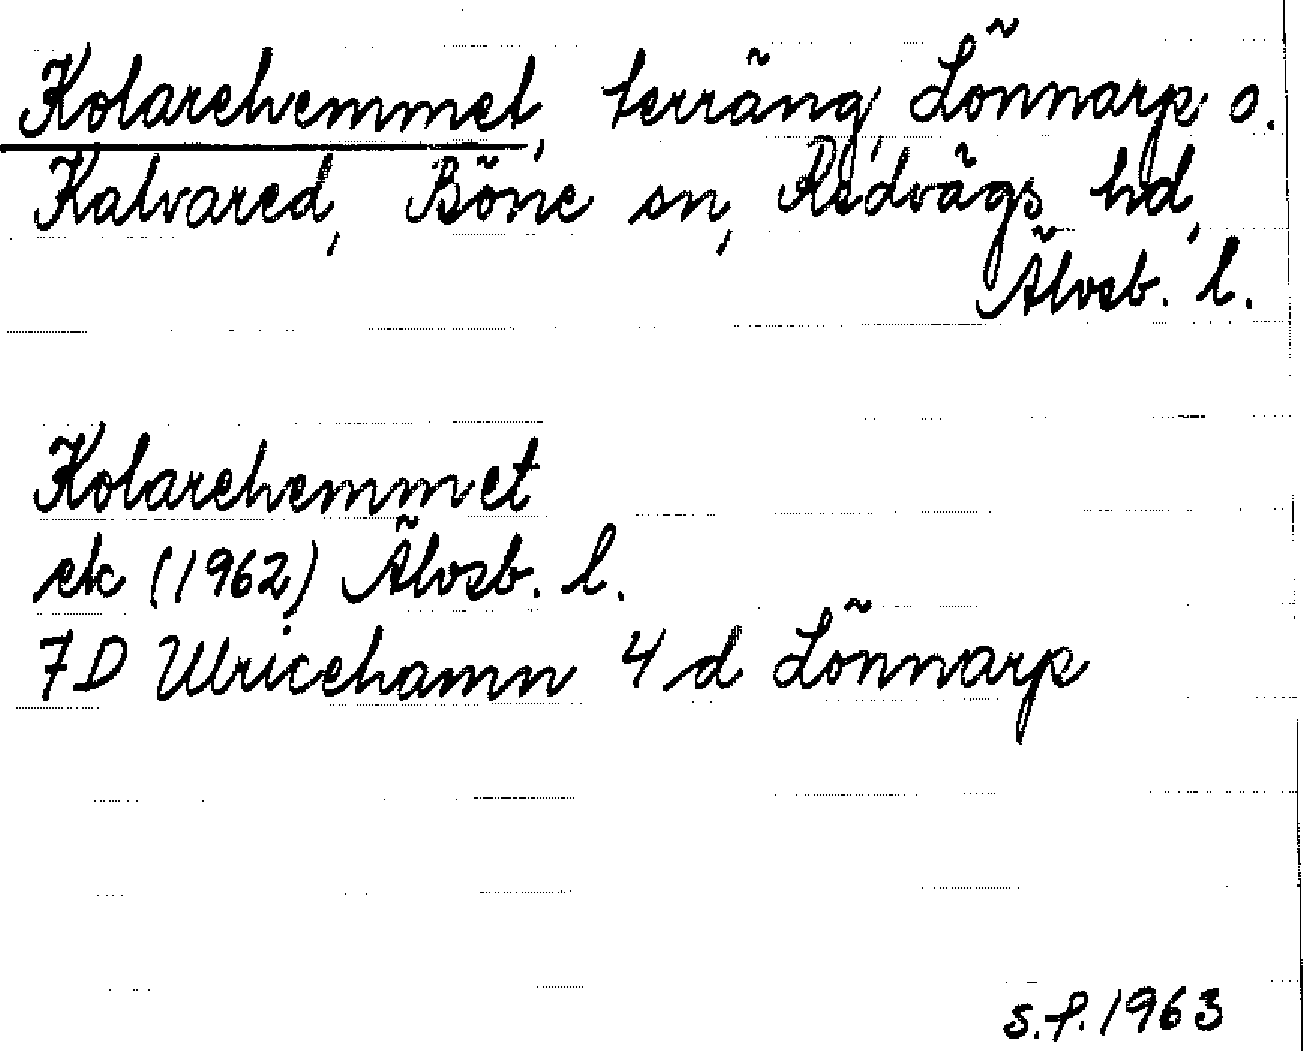 Kolarehemmet, terräng, Lönnarp o.
Kalvared, Böne sn, Redvägs hd,
Älvsb. l.
Kolarehemmet
ek (1962) Älvsb. l.
7D Ulricehamn 4 d Lönnarp
s.f. 1963